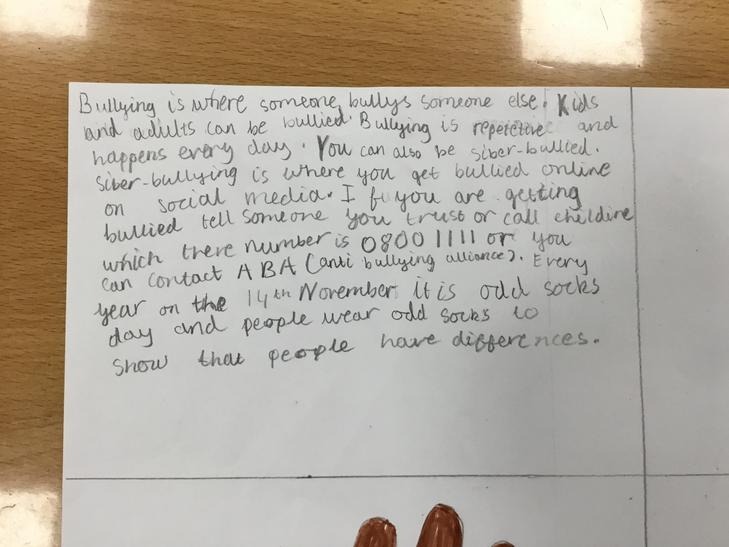 Bullying is where someone bullys someone else. Kids
and adults can be bullied. Bullying is repetetive and
happens every day. You can also be siber-bullied.
siber-bullying is where you get bullied online
on social media. If you are getting
bullied tell someone you trust or call childine
which there number is 0800 1111 or you
can contact ABA (anti bullying alliance). Every
year on the 14th November it is odd socks
day and people wear odd socks to
show that people have differences.